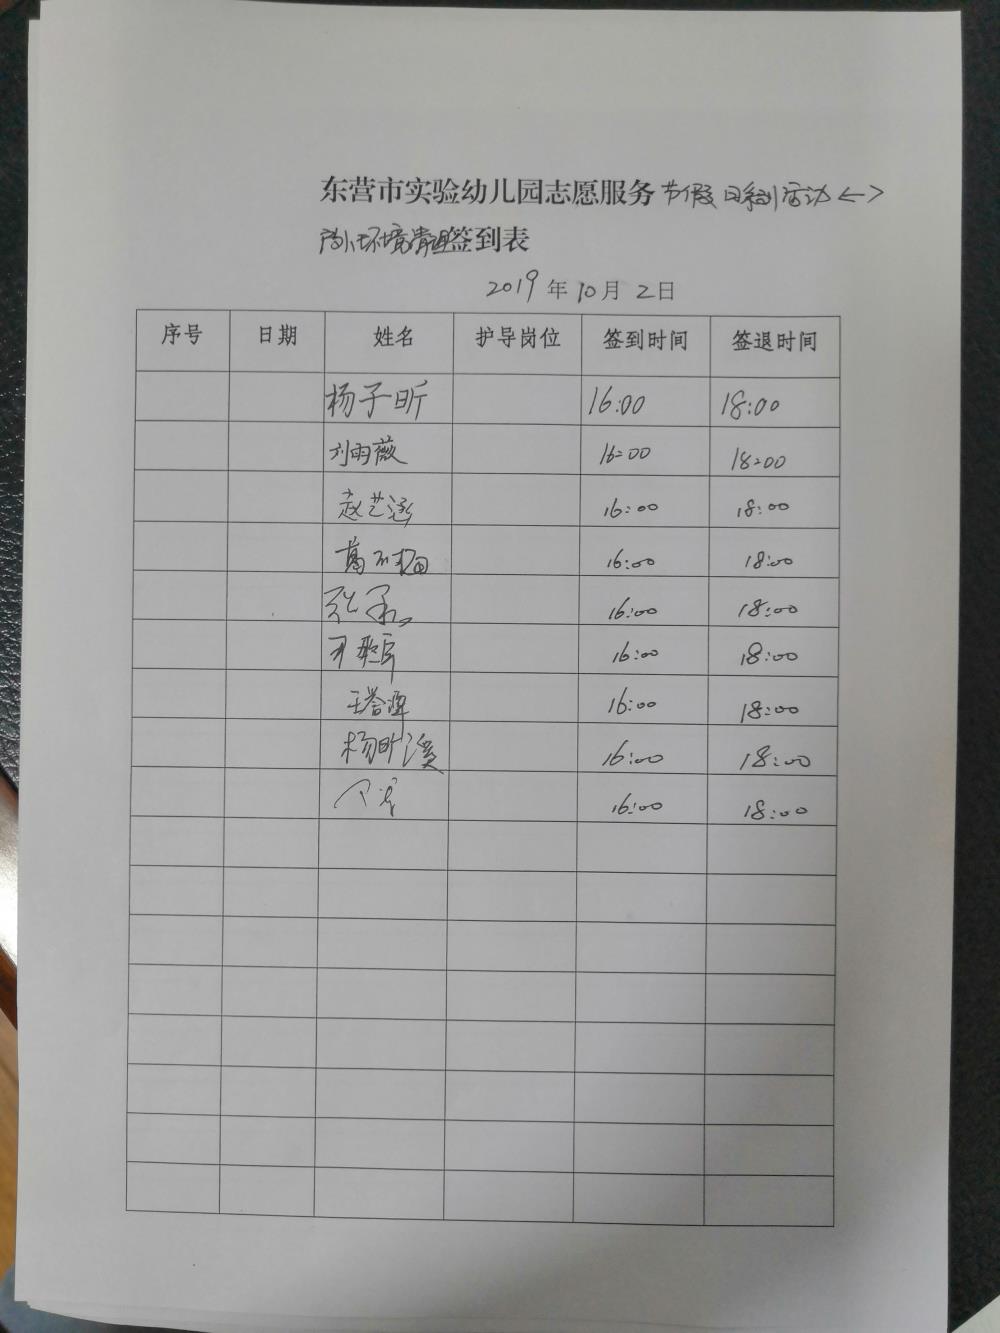 东营市实验幼儿园志愿服务节假日系列活动<>
环境清理签到表
2019年10月2日
序号 日期 姓名 护导岗位 签到时间 签退时间
杨子昕 16:00 18:00
刘雨薇 16:00 18:00
赵艺涵 16:00 18:00
葛 16:00 18:00
16:00 18:00
16:00 18:00
王 16:00 18:00
杨昕溪 16:00 18:00
16:00 18:00